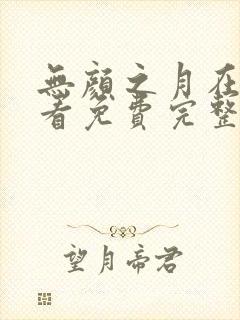 無顏之月在
看免費完整
望月帝君